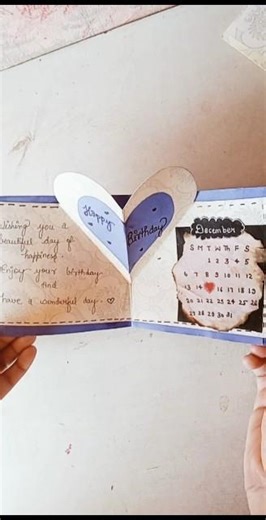 Wishing you a
beautiful day of
happiness.
Enjoy your birthday
and
have a wonderful day.
Happy
Birthday
December
S M T W Th F S
1 2 3 4 5
6 7 8 9 10 11 12
13 14 16 17 18 19
20 21 22 23 24 25 26
27 28 29 30 31